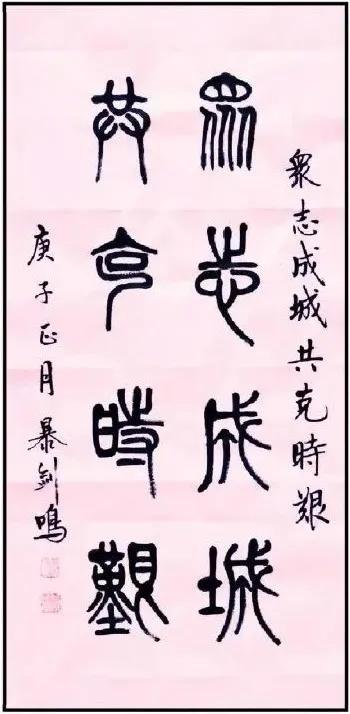 眾志成城共克時艱
眾志成城
共克時艱
庚子正月暴劍鳴